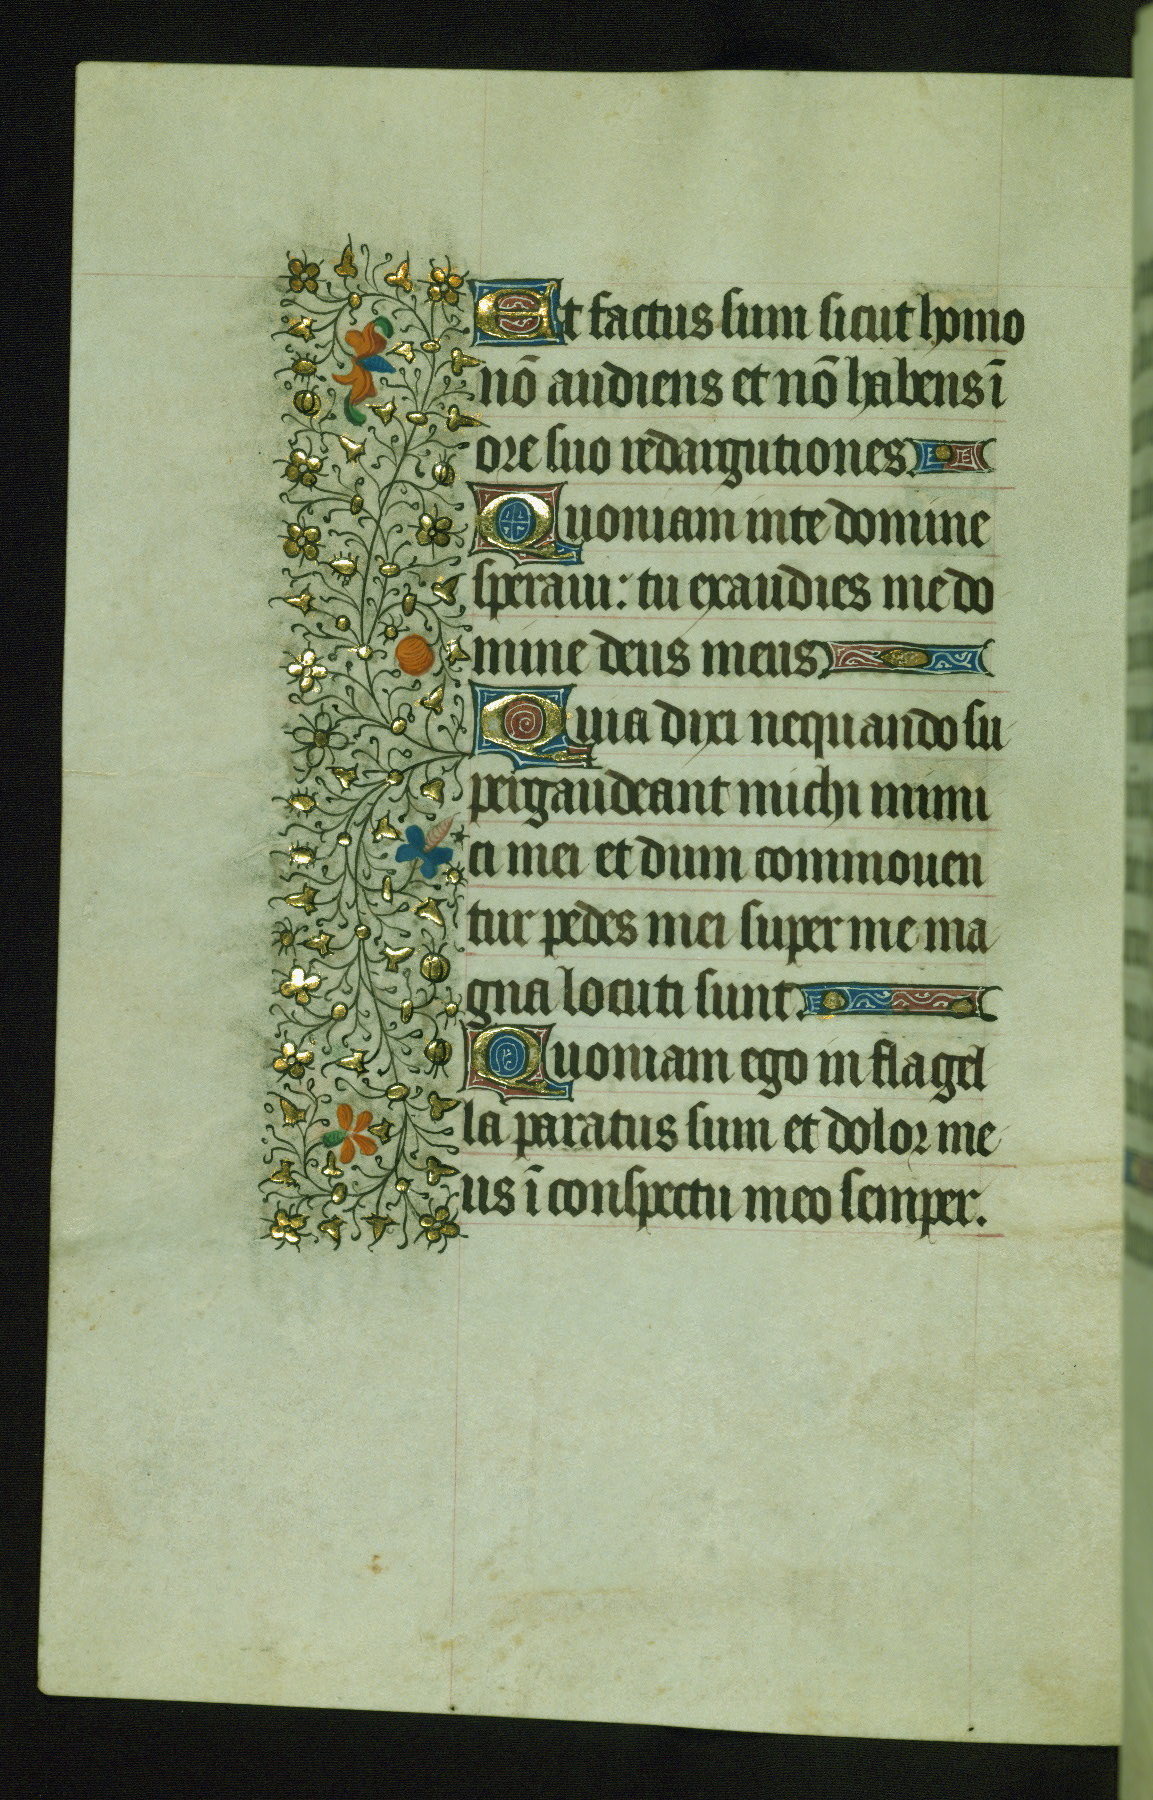 Et factus sum sicut homo
nō audiens et nō habens ī
ore suo redargutiones
Quoniam in te domine
speraui: tu exaudies me do
mine deus meus
Quia dixi nequando su
pergaudeant michi inimi
ci mei et dum commouen
tur pedes mei super me ma
gna locuti sunt.
Quoniam ego in flagel
la paratus sum et dolor me
us ī conspectu meo semper.